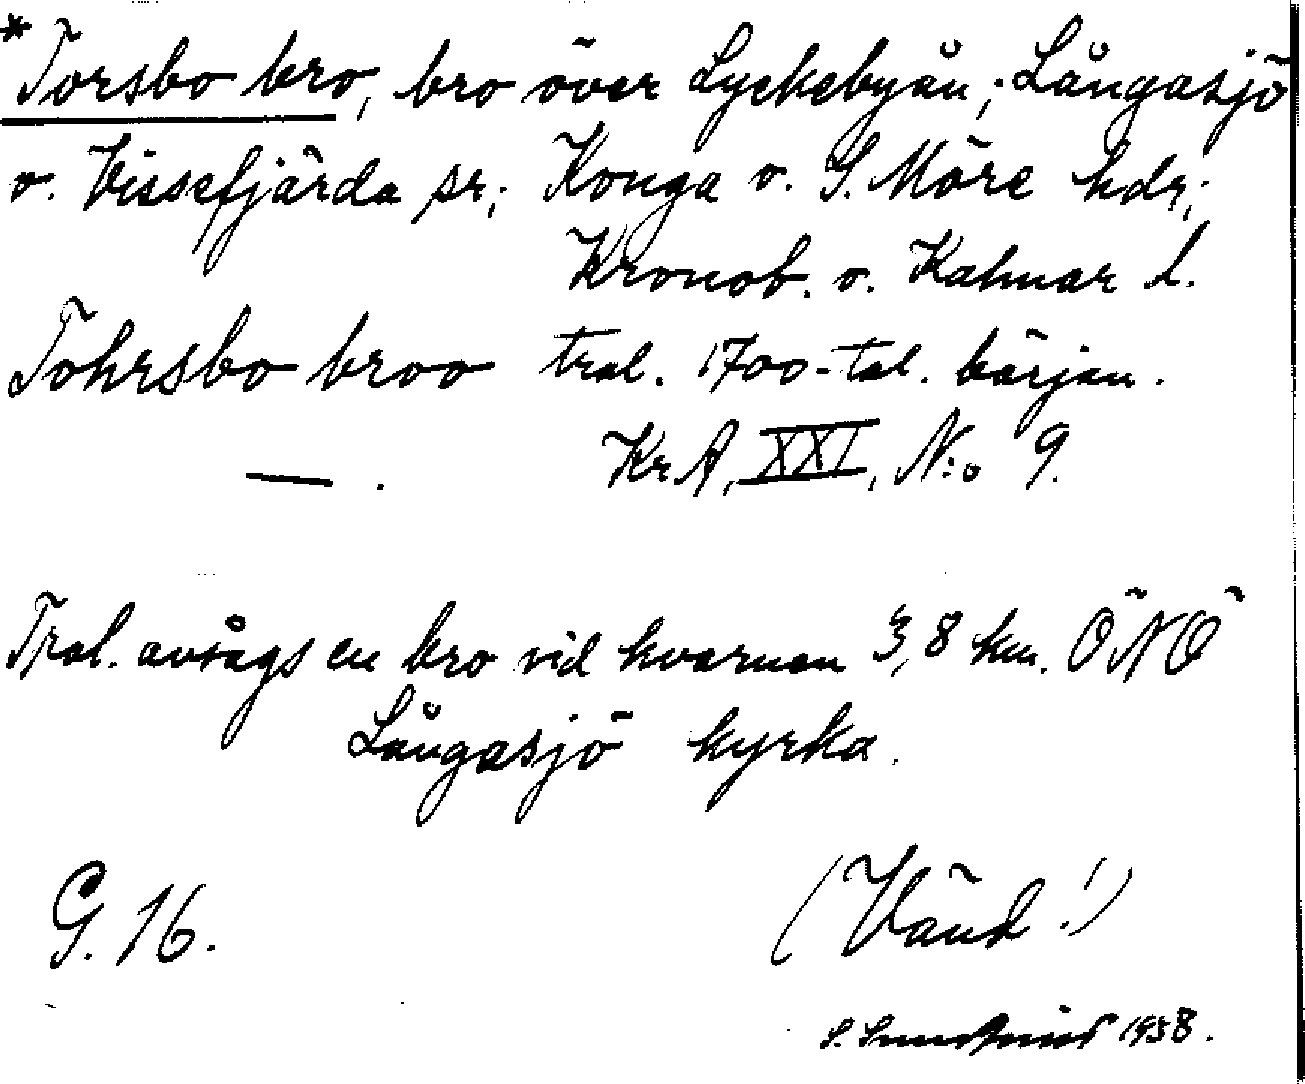 *Torsbo bro, bro över Lyckebyån; Långasjö
o. Vissefjärda sr; Konga o. S. Möre hdr;
Kronob. o. Kalmar l.
Tohrsbo broo trol. 1700-tal. början.
— . KrA, XXI, N:o 9.
Trol. avsågs en bro vid kvarnen 3,8 km. ÖNÖ
Långasjö kyrka.
G. 16. (Vänd!)
S. 1958.